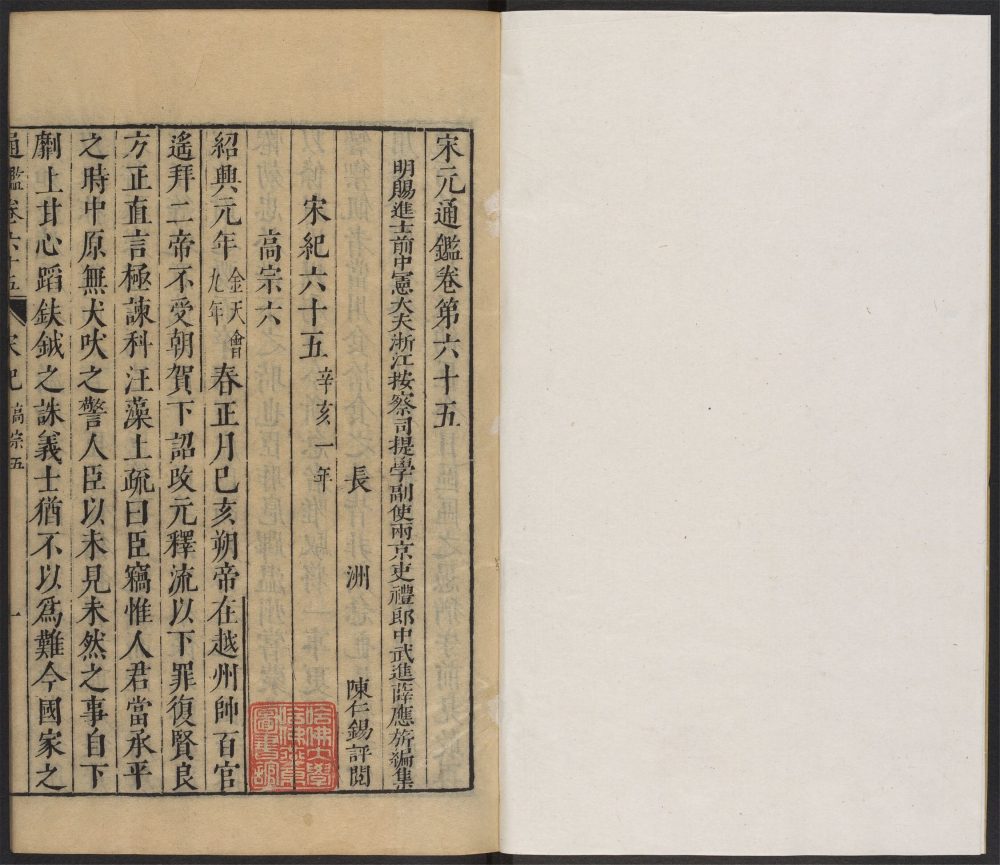 宋元通鑑卷第六十五
明賜進士前中憲大夫浙江按察司提學副使兩京吏禮郎中武進薛應旂編集
長洲 陳仁錫評閱
宋紀六十五 辛亥一年
高宗六
紹興元年 金天會九年 春正月己亥朔帝在越州帥百官
遙拜二帝不受朝賀下詔改元釋流以下罪復賢良
方正直言極諫科汪藻上疏曰臣竊惟人君當承平
之時中原無犬吠之警人臣以未見未然之事自下
劘上甘心蹈鈇鉞之誅義士猶不以爲難今國家之
通鑑卷六十五 宋紀 高宗五 一
哈佛大學哈佛燕京圖書館